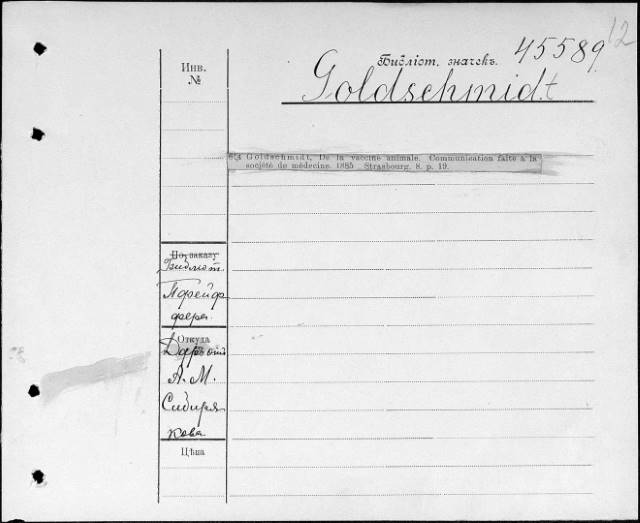 12
45589
Библіот. значекъ.
Goldschmidt
Инв.
№
Goldschmidt, De la vaccine animale. Communication faite à la
société de médecine. 1885. Strasbourg. 8. p. 19.
По заказу
Библіот.
Пфейф
фера
Откуда
Даръ отъ
А. М.
Сибиря
кова
Цѣна